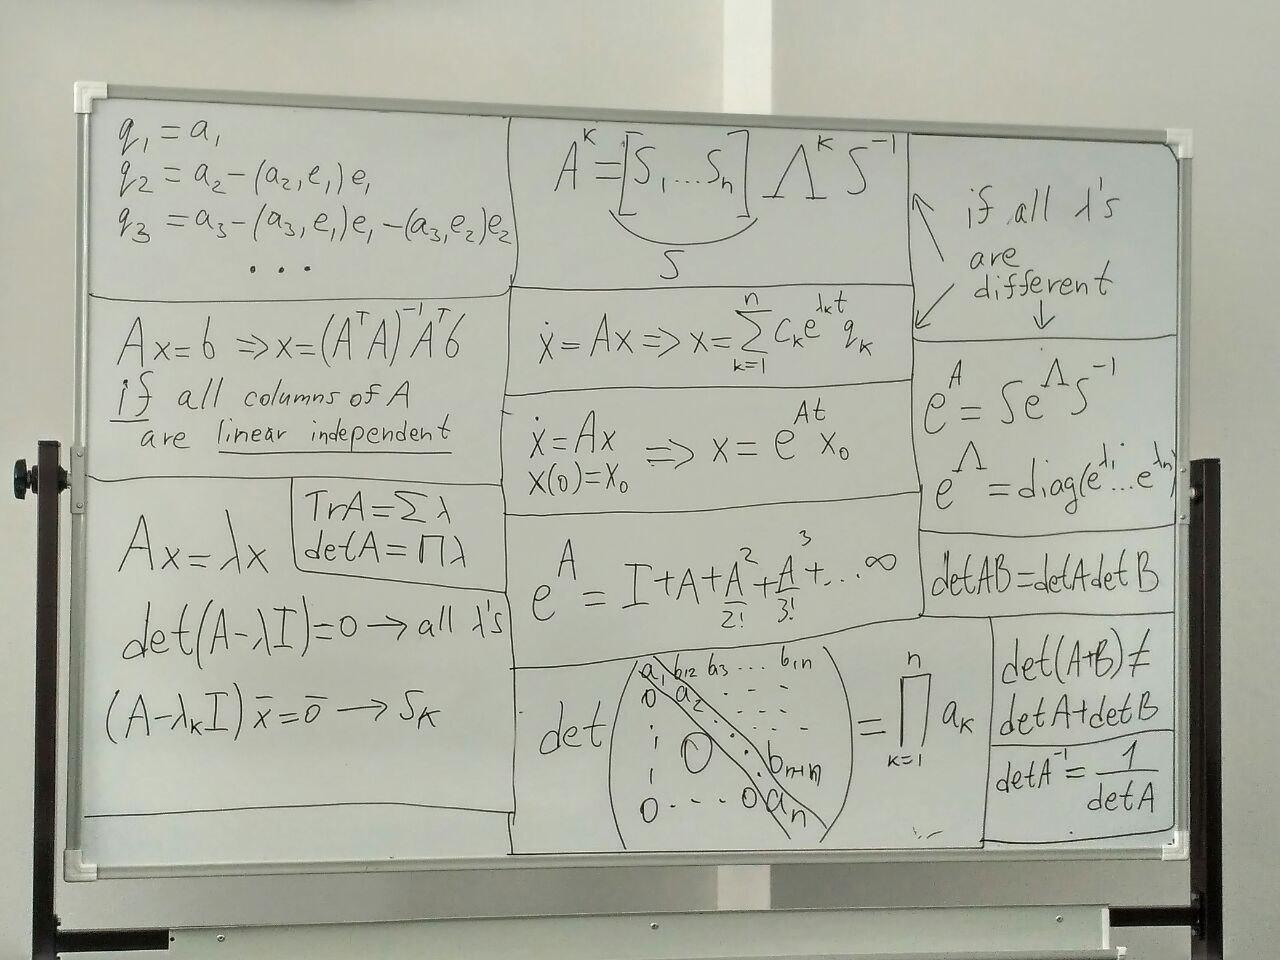 q₁ = a₁
q₂ = a₂ - (a₂, e₁)e₁
q₃ = a₃ - (a₃, e₁)e₁ - (a₃, e₂)e₂
...
Ax = b ⇒ x = (AᵀA)⁻¹Aᵀb
if all columns of A
are linear independent
TrA = Σλ
detA = Πλ
Ax = λx
det(A-λI) = 0 → all λ's
(A-λₖI)x̄ = ō → Sₖ
Aᴷ = [S₁...Sₙ] Λᴷ S⁻¹
S
ẋ = Ax ⇒ x = Σₖ₌₁ⁿ Cₖe^(λₖt) qₖ
ẋ = Ax
x(0) = x₀
⇒ x = e^(At) x₀
e^A = I + A + A²/2! + A³/3! + ... ∞
det
a₁ b₁₂ b₃ ... b₁ₙ
0 a₂ . - -
O
bₙ₋₁ₙ
0 - - - 0 aₙ
= ∏ₖ₌₁ⁿ aₖ
if all λ's
are
different
e^A = Se^Λ S⁻¹
e^Λ = diag(e^λ₁...e^λₙ)
detAB = detAdetB
det(A+B) ≠
detA+detB
detA⁻¹ = 1/detA